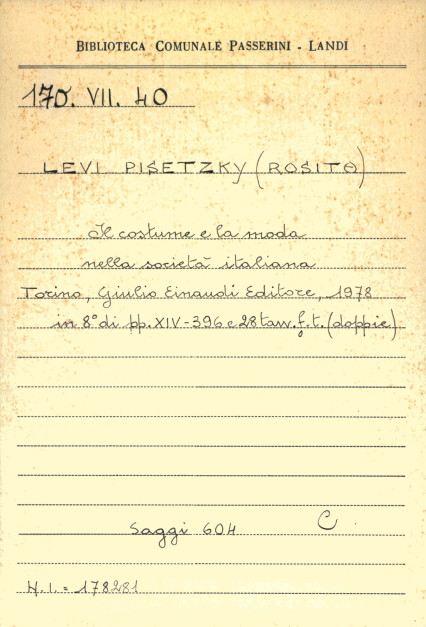 BIBLIOTECA COMUNALE PASSERINI - LANDI
170. VII. 40
LEVI PISETZKY (ROSITA)
Il costume e la moda
nella società italiana
Torino, Giulio Einaudi Editore, 1978
in 8° di pp. XIV-396 e 28 tavv. f.t. (doppie)
Saggi 604 C
N.I. = 178281